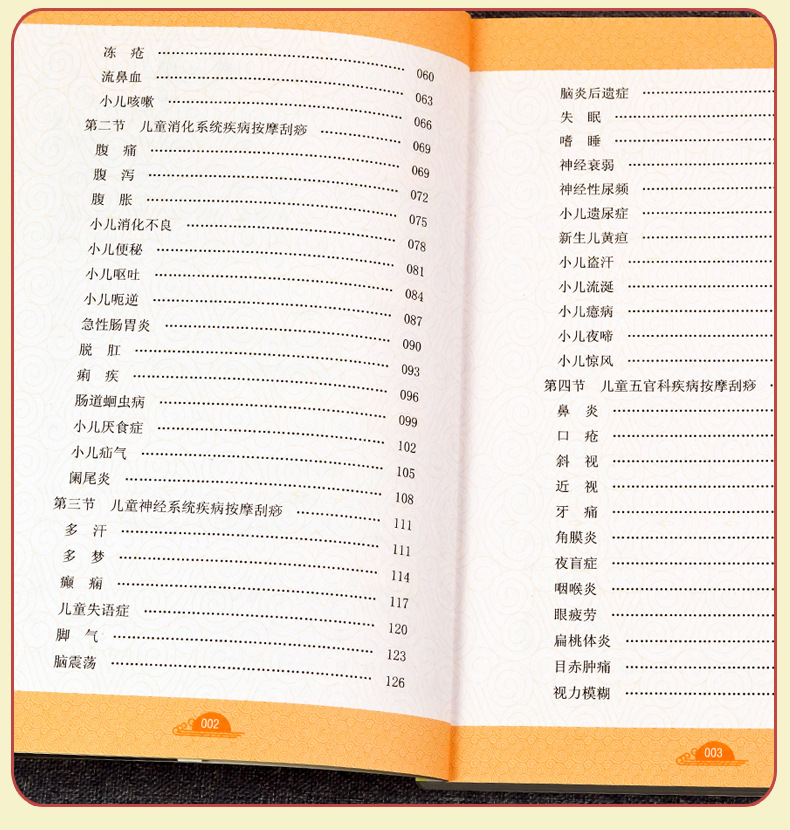 冻　疮 060
流鼻血 063
小儿咳嗽 066
第二节　儿童消化系统疾病按摩刮痧 069
腹　痛 069
腹　泻 072
腹　胀 075
小儿消化不良 078
小儿便秘 081
小儿呕吐 084
小儿呃逆 087
急性肠胃炎 090
脱　肛 093
痢　疾 096
肠道蛔虫病 099
小儿厌食症 102
小儿疝气 105
阑尾炎 108
第三节　儿童神经系统疾病按摩刮痧 111
多　汗 111
多　梦 114
癫　痫 117
儿童失语症 120
脚　气 123
脑震荡 126
002
脑炎后遗症
失　眠
嗜　睡
神经衰弱
神经性尿频
小儿遗尿症
新生儿黄疸
小儿盗汗
小儿流涎
小儿癔病
小儿夜啼
小儿惊风
第四节　儿童五官科疾病按摩刮痧
鼻　炎
口　疮
斜　视
近　视
牙　痛
角膜炎
夜盲症
咽喉炎
眼疲劳
扁桃体炎
目赤肿痛
视力模糊
003